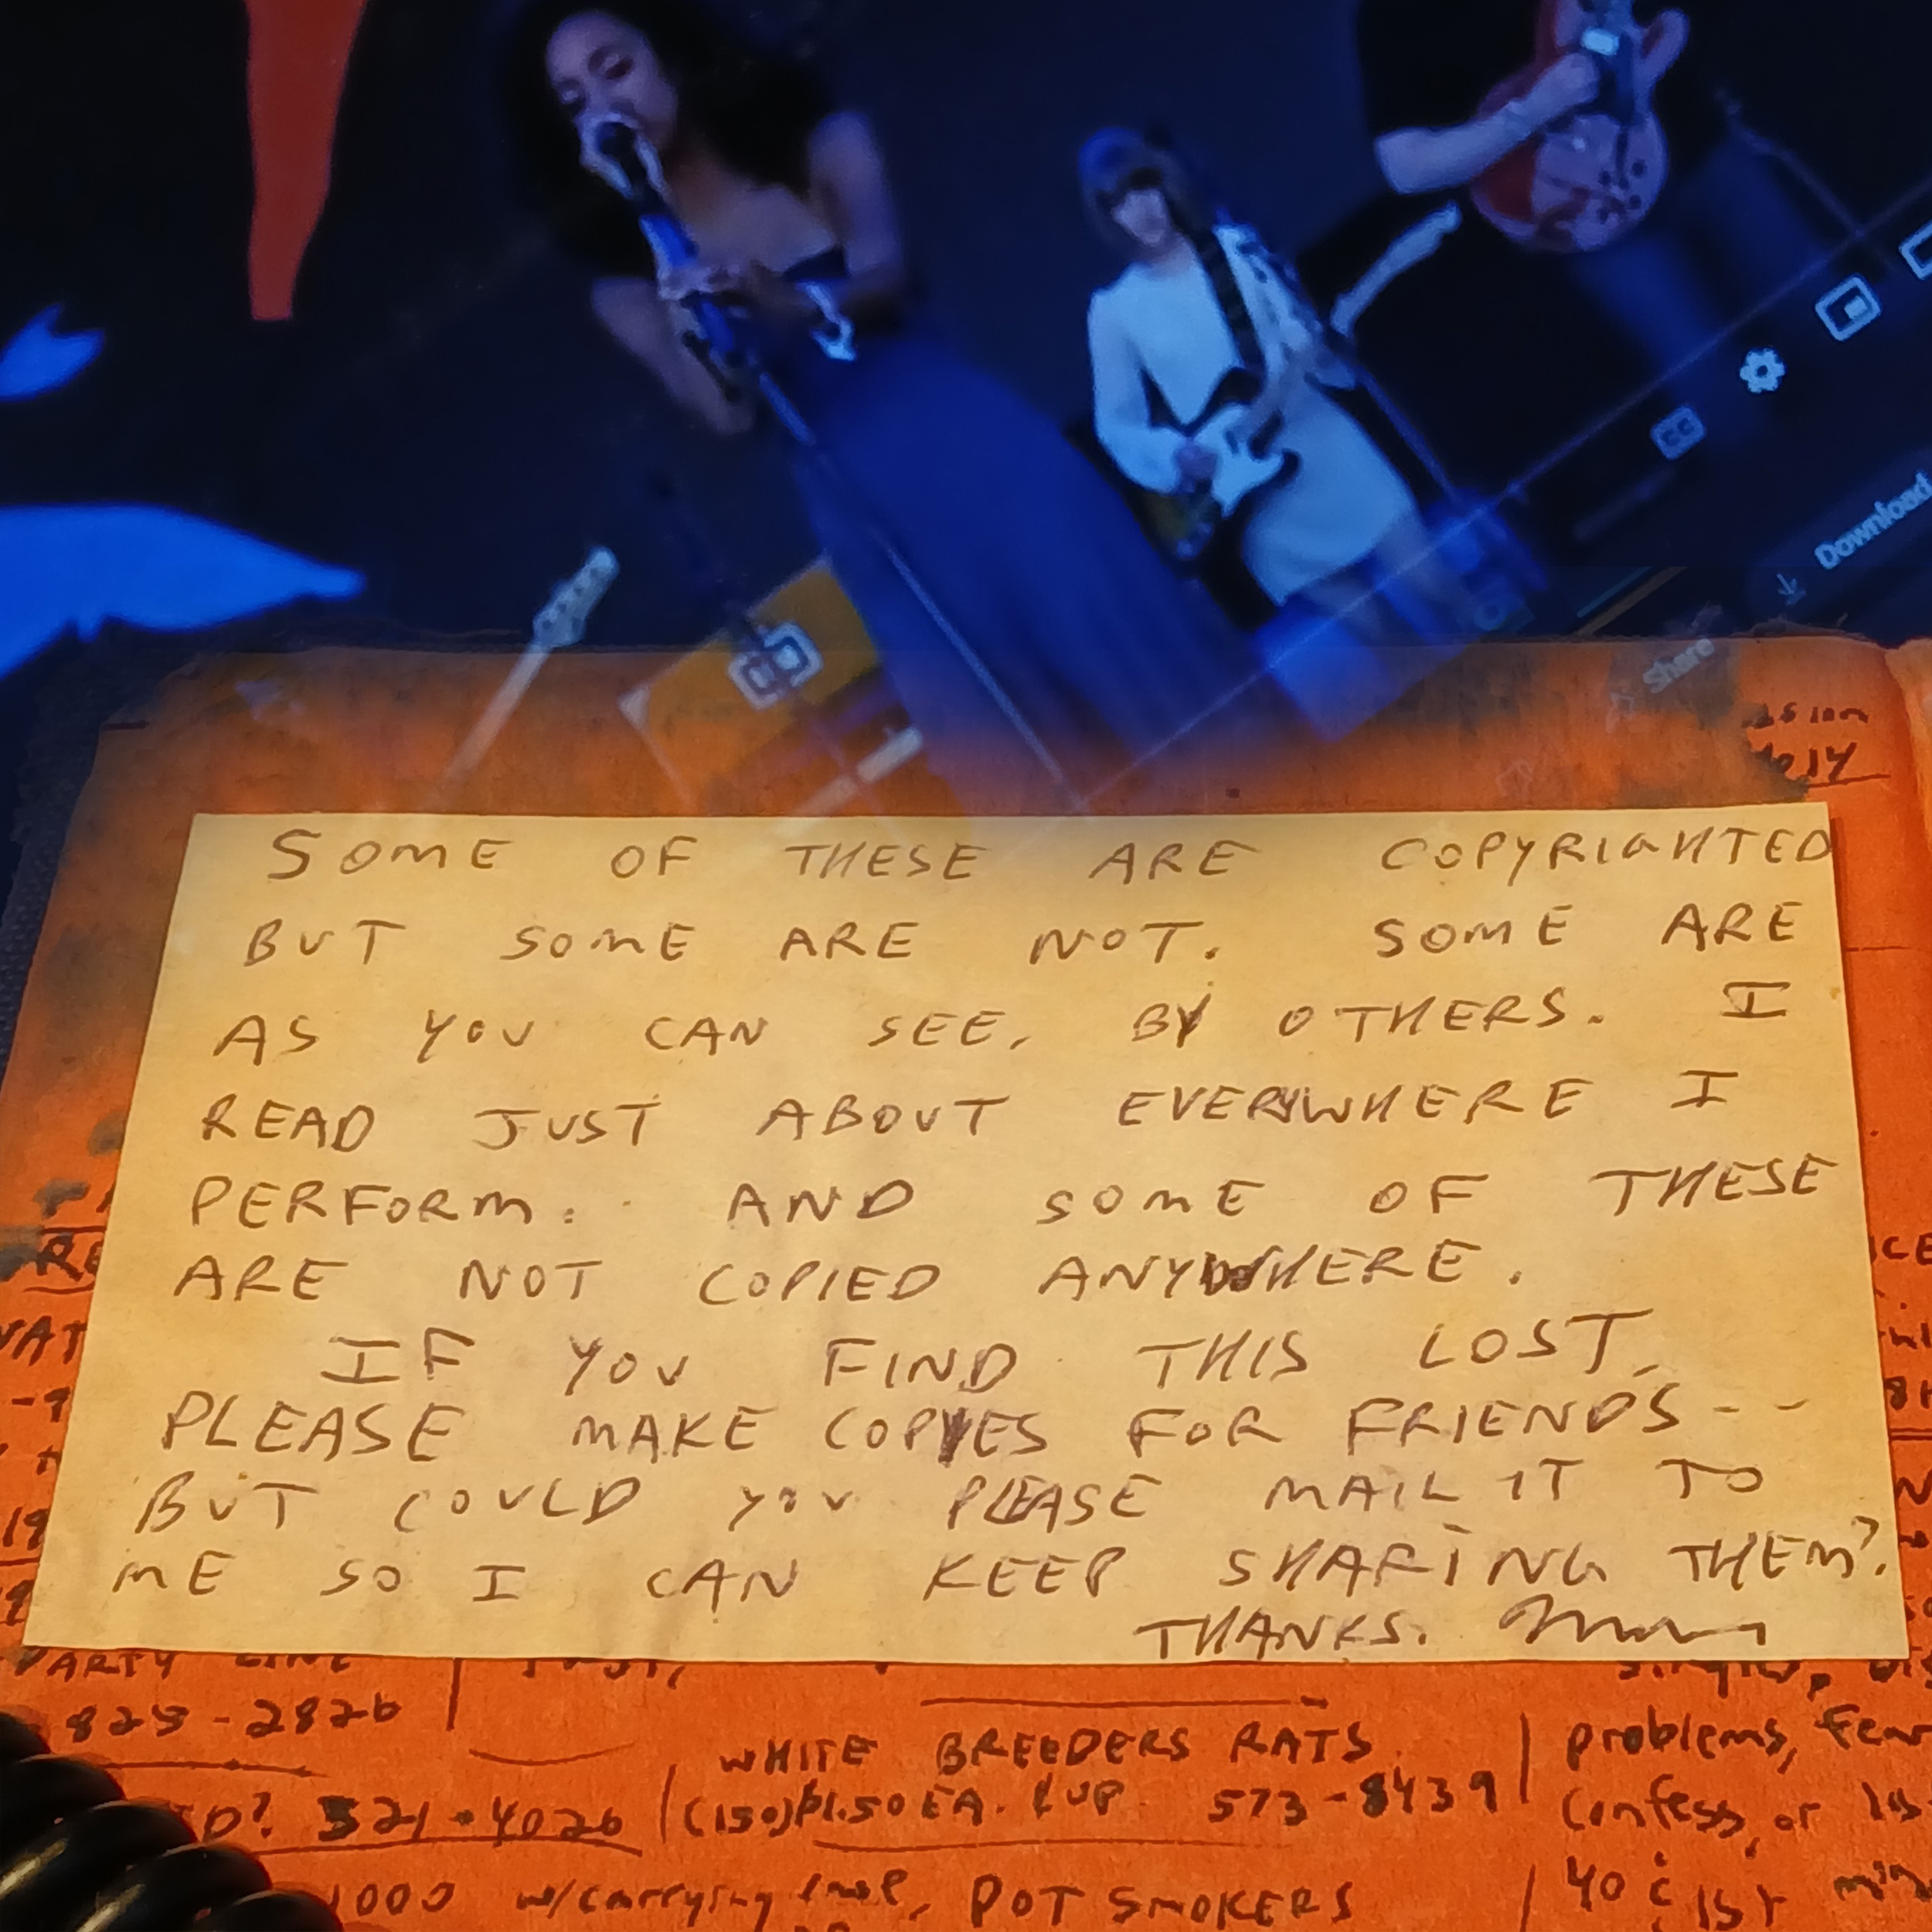 CC
Download
Share
14
SOME OF THESE ARE COPYRIGHTED
BUT SOME ARE NOT. SOME ARE
AS YOU CAN SEE, BY OTHERS. I
READ JUST ABOUT EVERYWHERE I
PERFORM. AND SOME OF THESE
ARE NOT COPIED ANYWHERE.
IF YOU FIND THIS LOST,
PLEASE MAKE COPIES FOR FRIENDS--
BUT COULD YOU PLEASE MAIL IT TO
ME SO I CAN KEEP SHARING THEM?
THANKS.
PARTY LINE
823-2826
WHITE BREEDERS RATS
(150) $1.50 EA. & UP 573-8439
D? 321-4026
problems, fear
confess, or
1000 w/carrying POT SMOKERS
40¢ 1st min